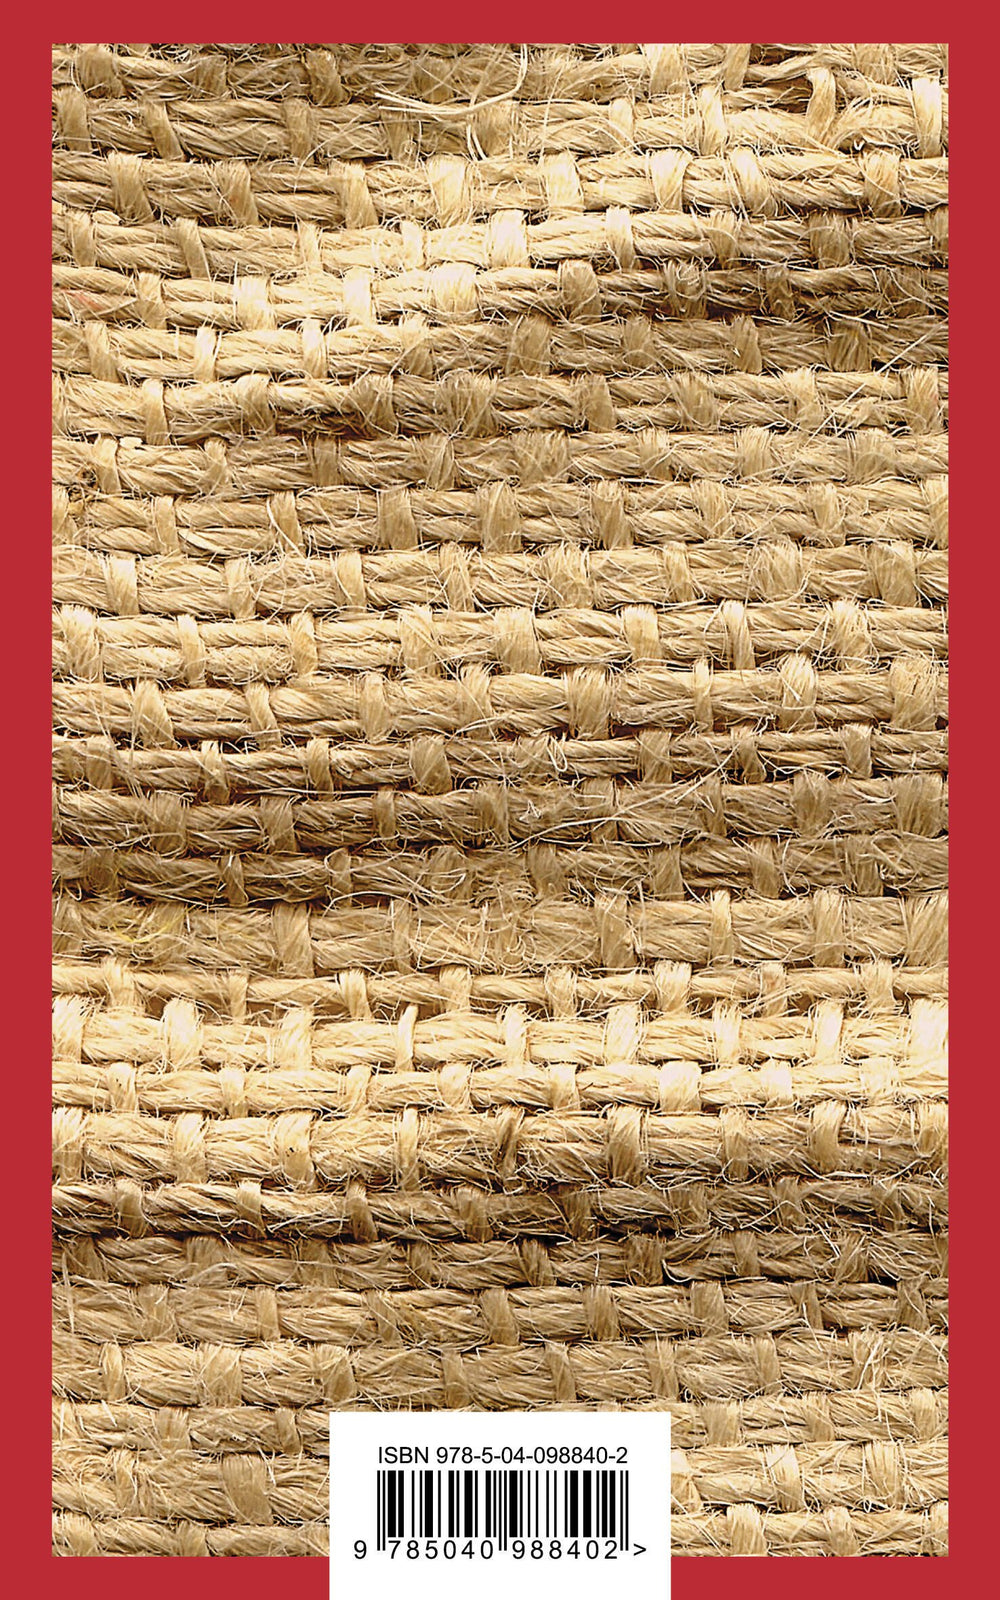 ISBN 978-5-04-098840-2
9 785040 988402 >